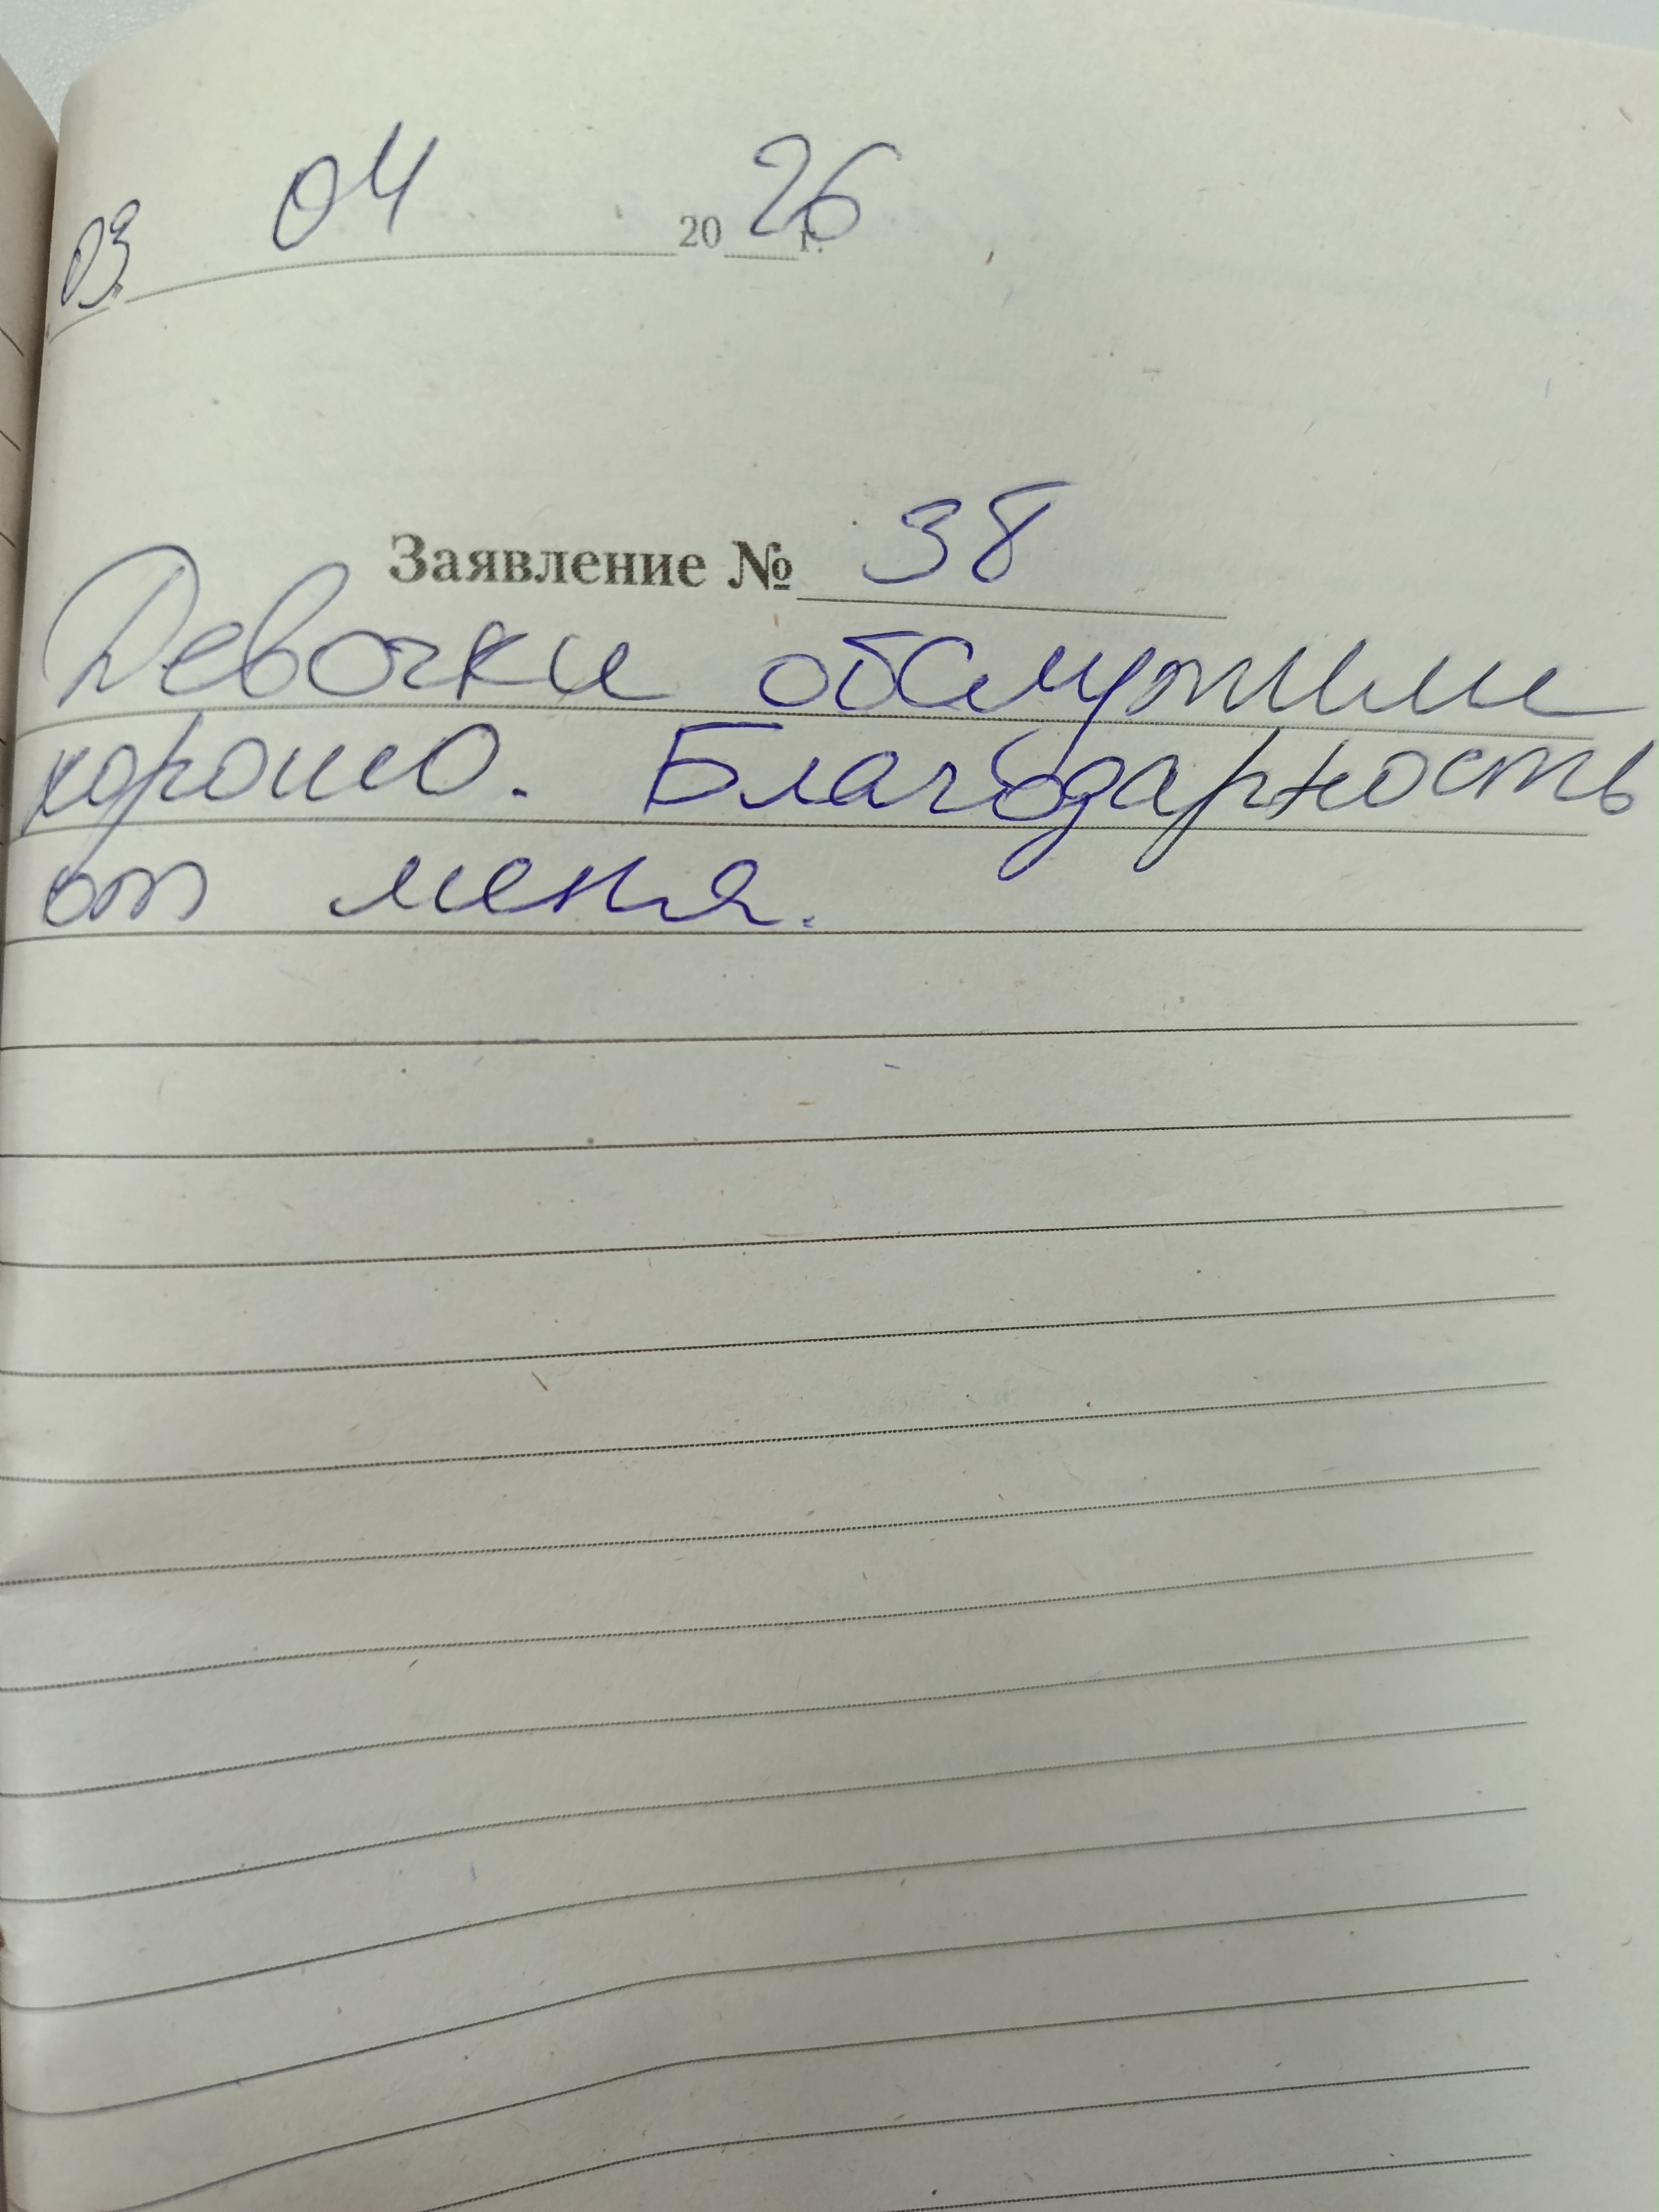 03. 04 2026 г.
Заявление № 38
Девочки обслужили
хорошо. Благодарность
от меня.